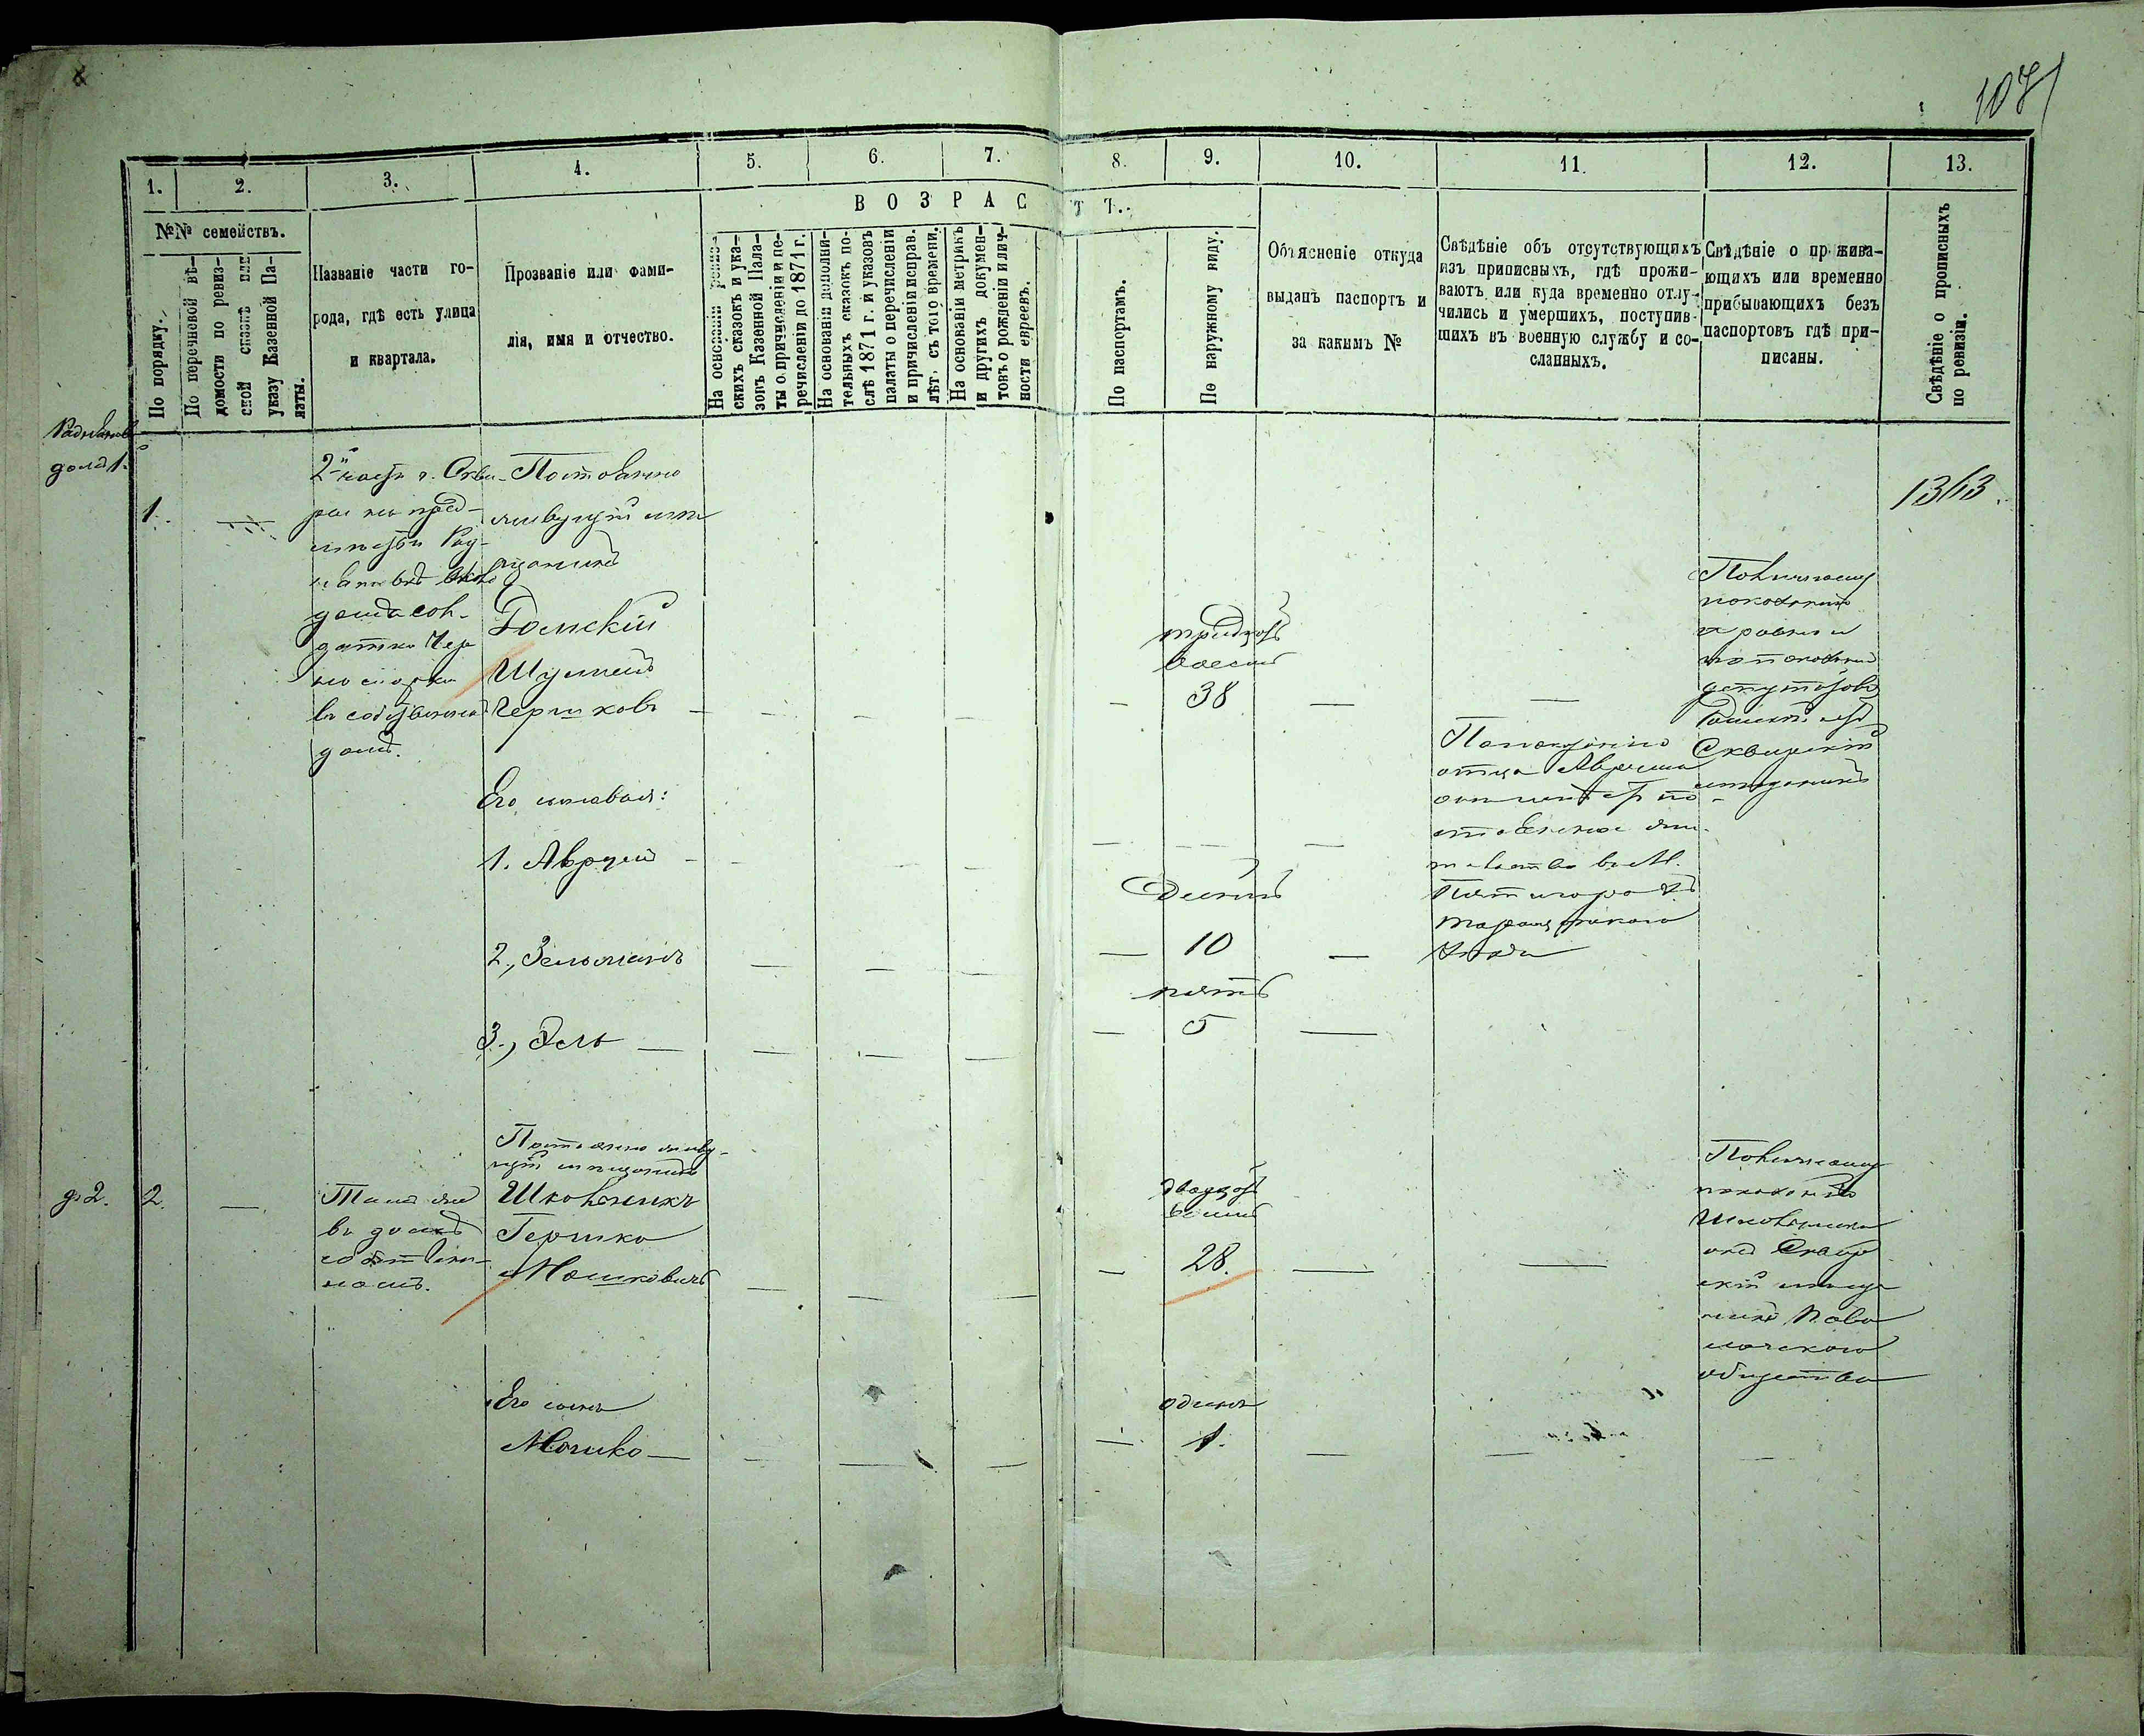 1071
1.
2.
3.
4.
5.
6.
7.
8.
9.
10.
11.
12.
13.
№№ семействъ.
По порядку.
По перечневой вѣ-
домости по ревиз-
ской сказкѣ или
указу Казенной Па-
латы.
Названіе части го-
рода, гдѣ есть улица
и квартала.
Прозваніе или фами-
лія, имя и отчество.
В О З Р А С Т Ъ.
На основаніи ревиз-
скихъ сказокъ и ука-
зовъ Казенной Пала-
ты о причисленіи и пе-
речисленіи до 1871 г.
На основаніи дополни-
тельныхъ сказокъ по-
слѣ 1871 г. и указовъ
палаты о перечисленіи
и причисленіи исправ.
лѣт. съ того времени.
На основаніи метрикъ
и другихъ докумен-
товъ о рожденіи и лич-
ности евреевъ.
По паспортамъ.
По наружному виду.
Объясненіе откуда
выданъ паспортъ и
за какимъ №
Свѣдѣніе объ отсутствующихъ
изъ приписныхъ, гдѣ прожи-
ваютъ или куда временно отлу-
чились и умершихъ, поступив-
шихъ въ военную службу и со-
сланныхъ.
Свѣдѣніе о прожива-
ющихъ или временно
прибывающихъ безъ
паспортовъ гдѣ при-
писаны.
Свѣдѣніе о прописныхъ
по ревизіи.
домъ 1.
1.
2й части г. Сквы-
ры на пред-
мѣстьи
дома сол-
датки Чер
въ собственномъ
домѣ.
Постоянно
живущій мѣ
щанинъ
Томскій
Шулимъ
Гершковъ
тридцать
восемь
38
Его сыновья:
1. Аврумъ
2., Зельманъ
десять
10
3., Эль
пять
5
отца Аврума
по-
стоянное жи-
тельство въ М.
Пятигорахъ
Таращанского
уѣзда
По личному
показанію
Сквирскій
мѣщанинъ
1363.
д. 2.
2.
Тамъ же
въ домѣ
собствен-
номъ.
Постоянно живу-
щій мѣщанинъ
Школьникъ
Гершко
Мошковичъ
двадцать
восемь
28.
По личному
показанію
Школьника
онъ Сквир
скій мѣща
нинъ Паво
лочского
общества
Его сынъ
Мошко
одинъ
1.